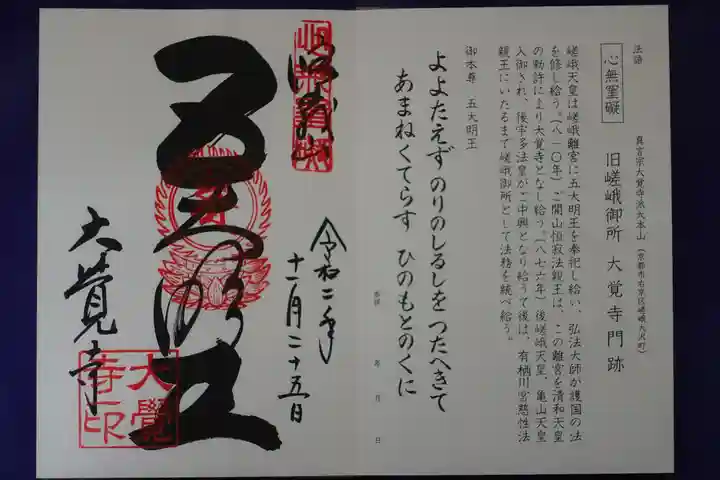 法語
心無罣礙
真言宗大覚寺派大本山(京都市右京区嵯峨大沢町)
旧嵯峨御所 大覚寺門跡
嵯峨天皇は嵯峨離宮に五大明王を奉祀し給い、弘法大師が護国の法
を修し給う。(八一〇年)ご開山恒寂法親王は、この離宮を清和天皇
の勅許により大覚寺となし給う。(八七六年)後嵯峨天皇、亀山天皇
入御され、後宇多法皇がご中興となり給うて後は、有栖川宮慈性法
親王にいたるまで嵯峨御所として法務を統べ給う。
御本尊 五大明王
よよたえず のりのしるしを つたへきて
あまねくてらす ひのもとのくに
奉拝 年 月 日
令和二年
十一月二十五日
嵯峨山
五大明王
大覺寺
大覺
寺印